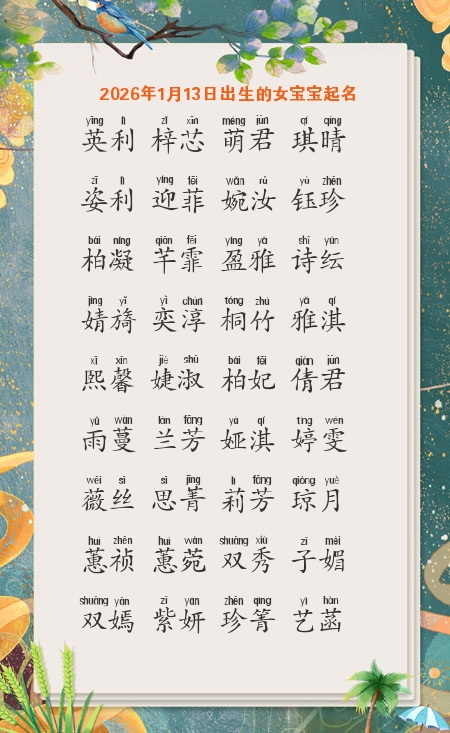 2026年1月13日出生的女宝宝起名
yīng lì zǐ xīn méng jūn qí qíng
英利 梓芯 萌君 琪晴
zī lì yíng fēi wǎn rǔ yù zhēn
姿利 迎菲 婉汝 钰珍
bǎi níng qiān fēi yíng yǎ shī yún
柏凝 芊霏 盈雅 诗纭
jīng yǐ yì chún tóng zhú yǎ qí
婧旖 奕淳 桐竹 雅淇
xī xīn jié shū bǎi fēi qiàn jūn
熙馨 婕淑 柏妃 倩君
yǔ wàn lán fāng yà qí tíng wén
雨蔓 兰芳 娅淇 婷雯
wēi sī sī jīng lì fāng qióng yuè
薇丝 思菁 莉芳 琼月
huì zhēn huì wǎn shuāng xiù zǐ mèi
蕙祯 蕙菀 双秀 子媚
shuāng yān zǐ yán zhēn qìng yì hàn
双嫣 紫妍 珍箐 艺菡